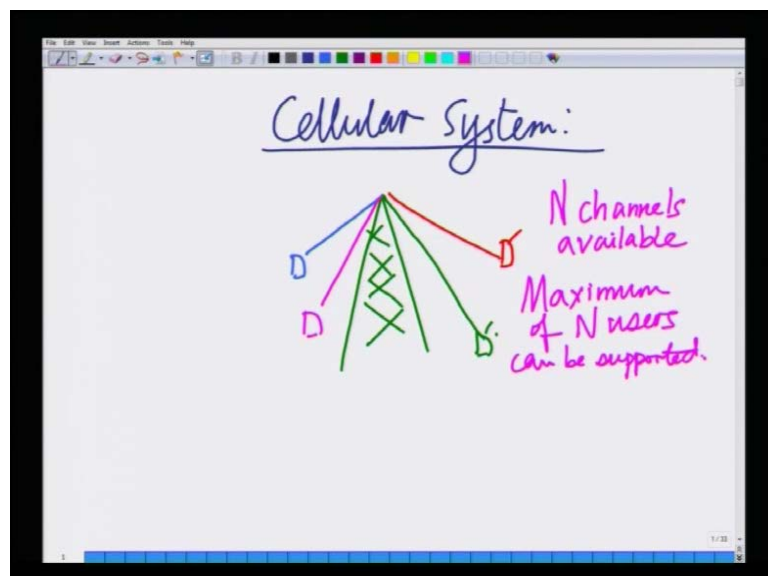 File Edit View Insert Actions Tools Help
Cellular System:
N channels
available
Maximum
of N users
can be supported.
D
D
D
D
1/33
1